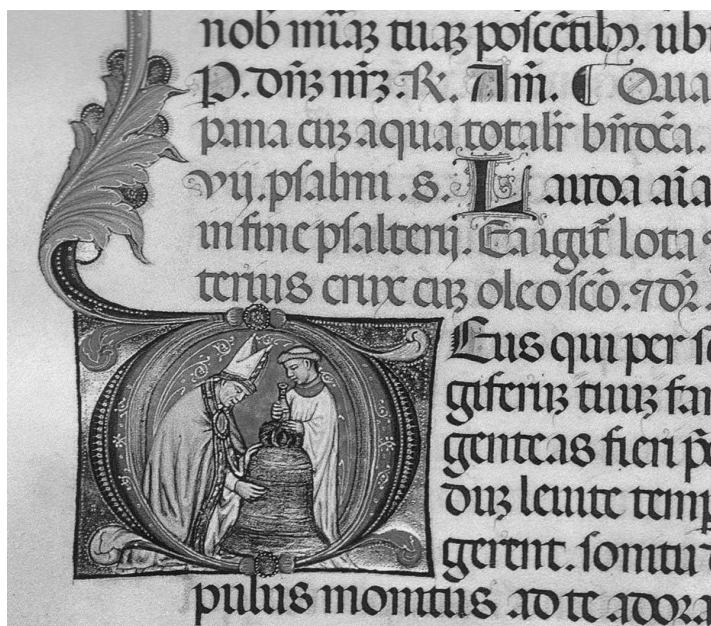 nob̄ mīaȝ tuaȝ poscētibȝ. ubi
P. dn̄ȝ nr̄ȝ. R. Am̄. ¶ Qua
pana cuȝ aqua totalir̄ bn̄dcā.
vij. psalmi. s. Lauda aīa
in fine psalterij. Ea igit̄ lota
terius crux cuȝ oleo scō. ⁊
Eus qui per
giferuȝ tuuȝ fa
genteas fieri p̄
duȝ leuite temp
gerent. sonitu
pulus monitus ad te adora